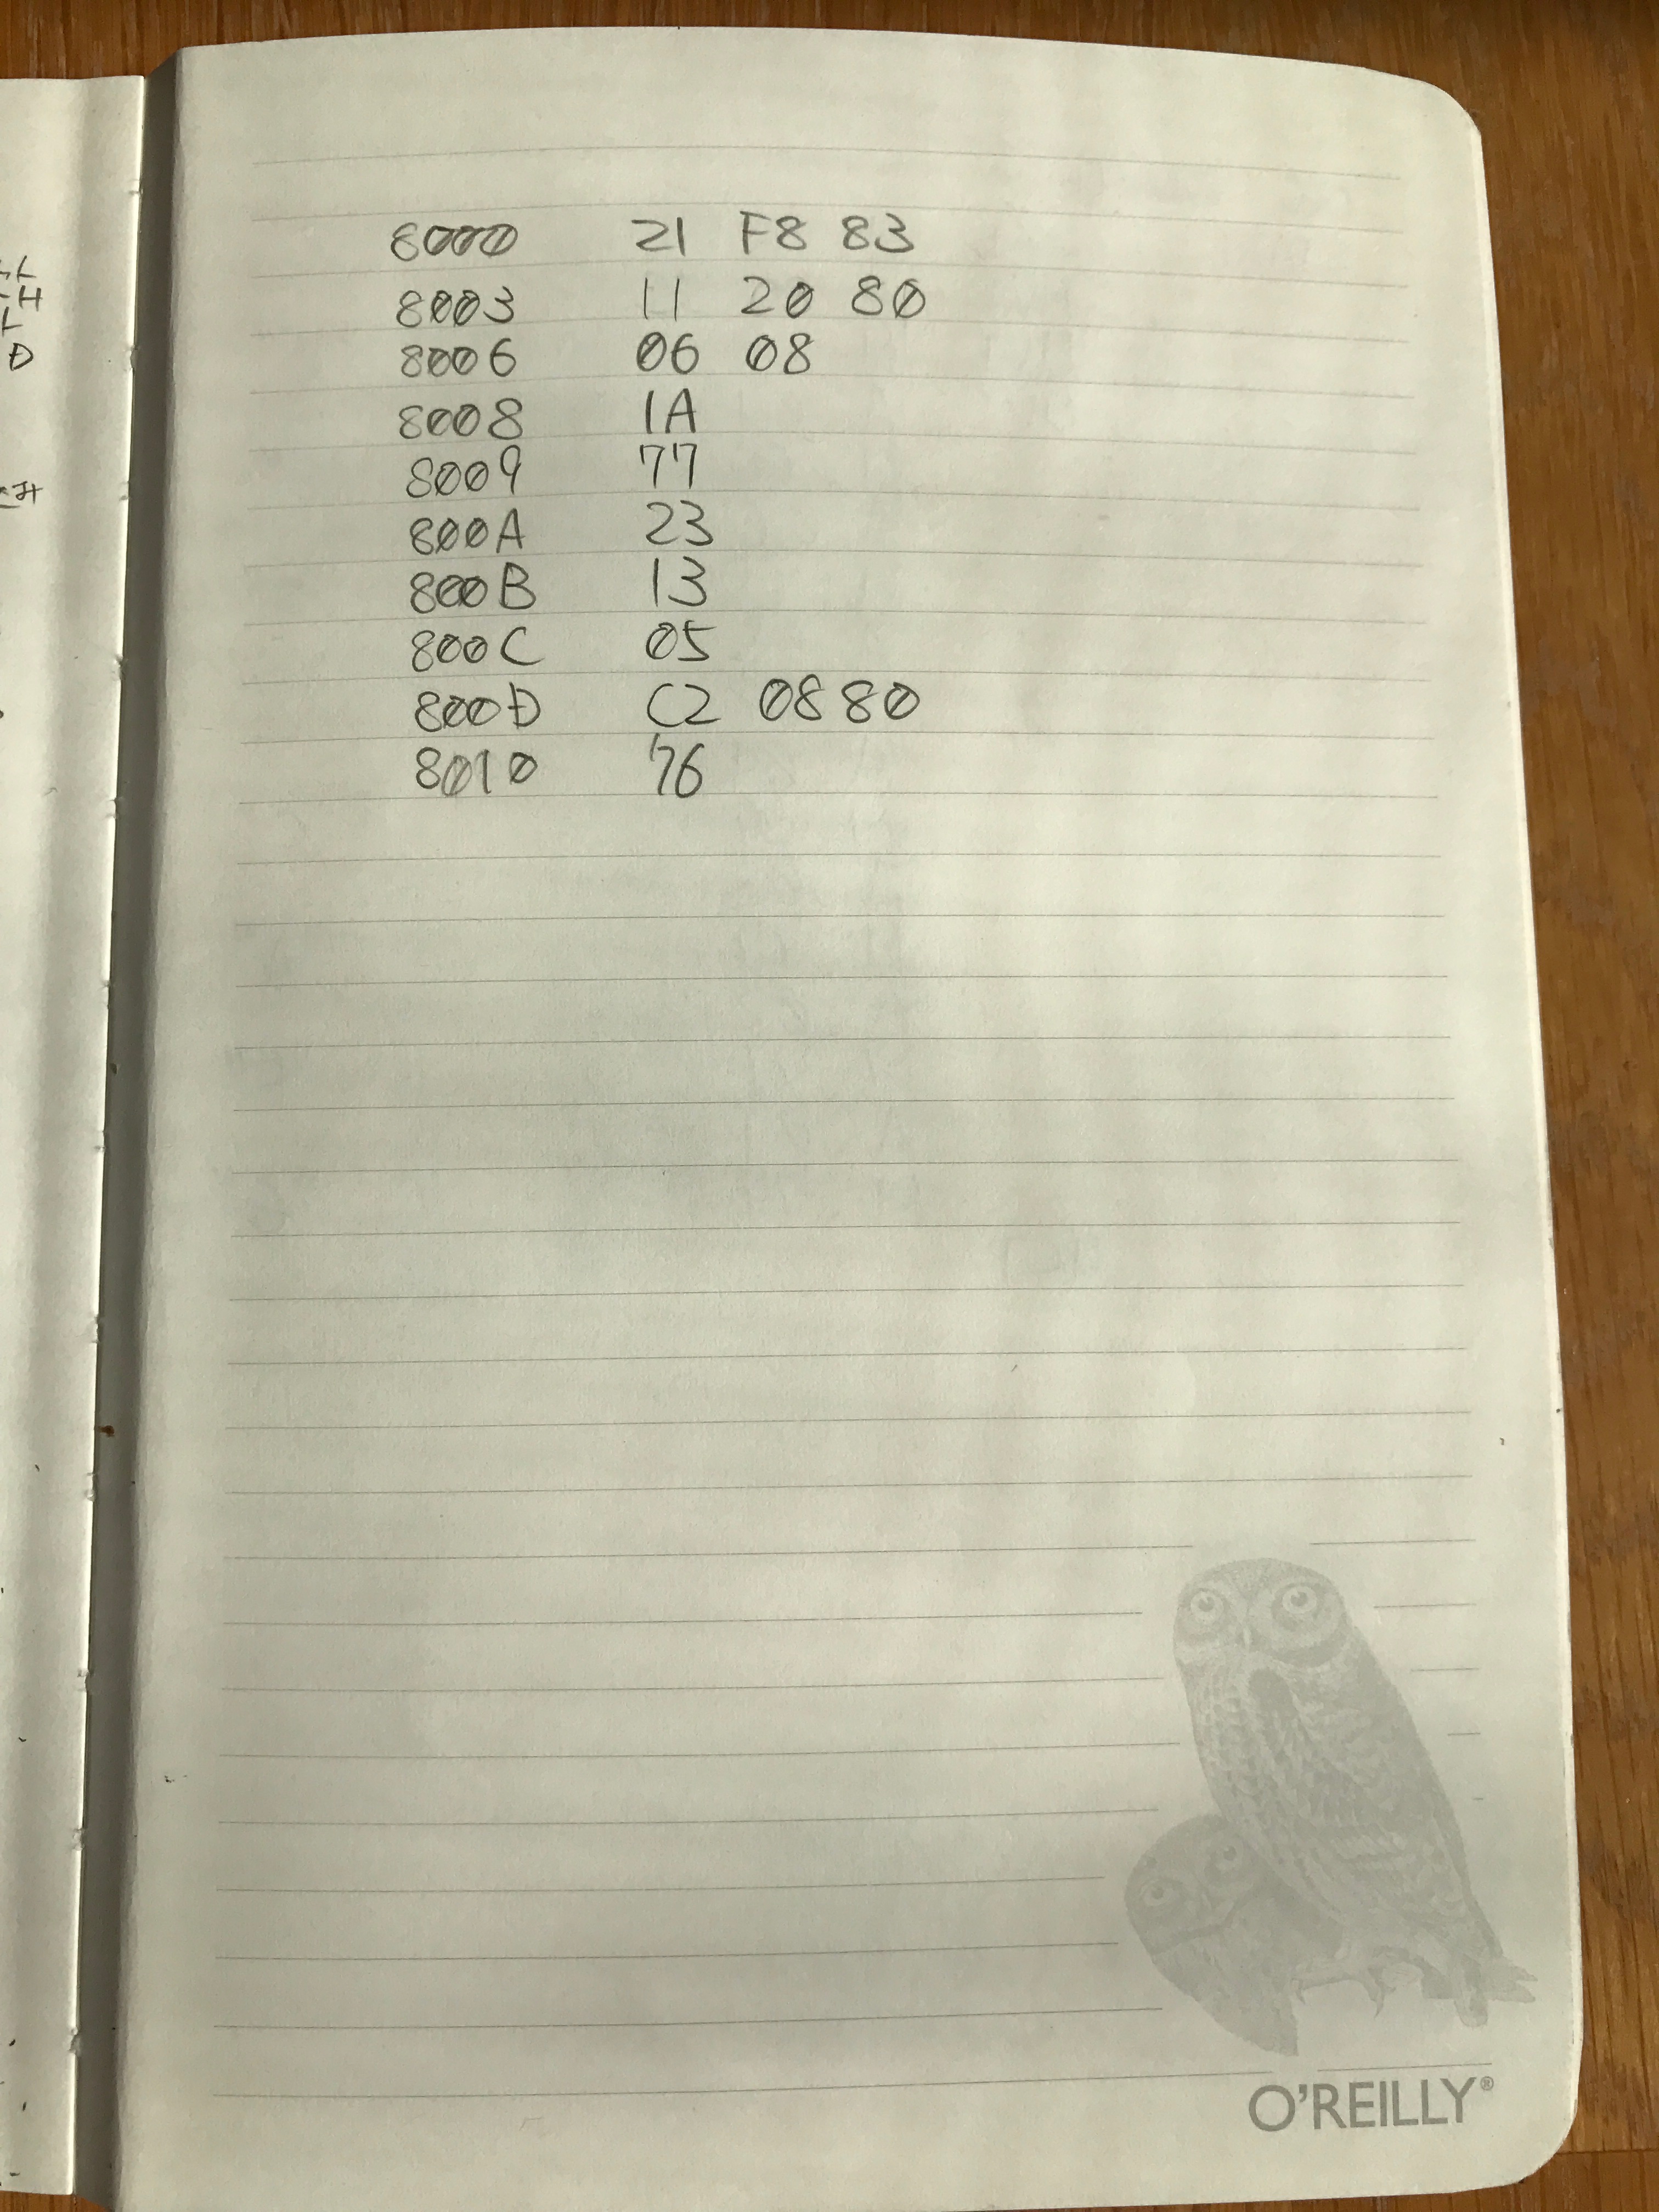 8000 21 F8 83
8003 11 20 80
8006 06 08
8008 1A
8009 77
800A 23
800B 13
800C 05
800D C2 08 80
8010 76
O'REILLY®